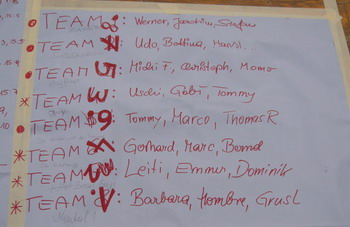 TEAM : Werner, Joachim, Stefan
TEAM : Udo, Bettina, Hansi...
TEAM 5: Michi F, Christoph, Momo
TEAM 3: Uschi, Gabi, Tommy
TEAM 9: Tommy, Marco, Thomas R.
TEAM X: Gerhard, Marc, Bernd
TEAM : Leiti, Emmus, Dominik
TEAM : Barbara, Hombre, Grusl